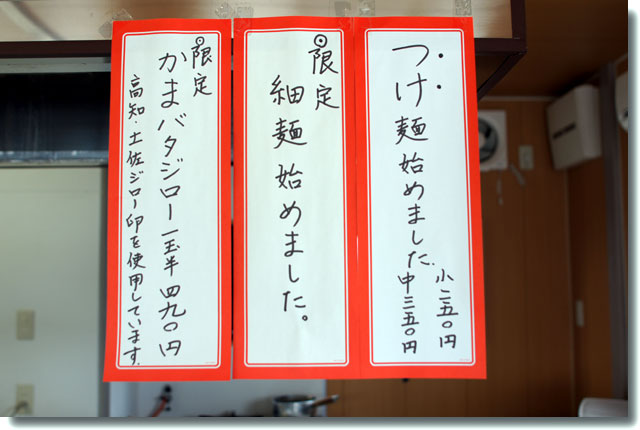 つけ麺始めました.
小二五〇円
中三五〇円
⦿限定
細麺始めました。
⦿限定
かまバタジロー一玉半四九〇円
高知・土佐ジロー卵を使用しています.